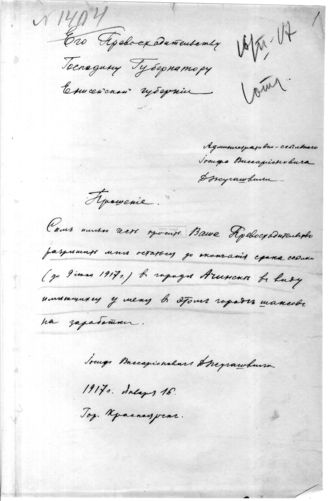 N 1404
Его Превосходительству
Господину Губернатору
Енисейской губернии
Административно-ссыльного
Іосифа Виссаріоновича
Джугашвили
Прошеніе.
Симъ имѣю честь просить Ваше Превосходительство
разрѣшить мнѣ остаться до окончанія срока ссылки
(до 9 іюня 1917 г.) в городѣ Ачинскѣ в виду
имѣющихся у меня в этомъ городѣ шансовъ
на заработки.
Іосифъ Виссаріоновичъ Джугашвили
1917 г. Января 16.
Гор. Красноярск.